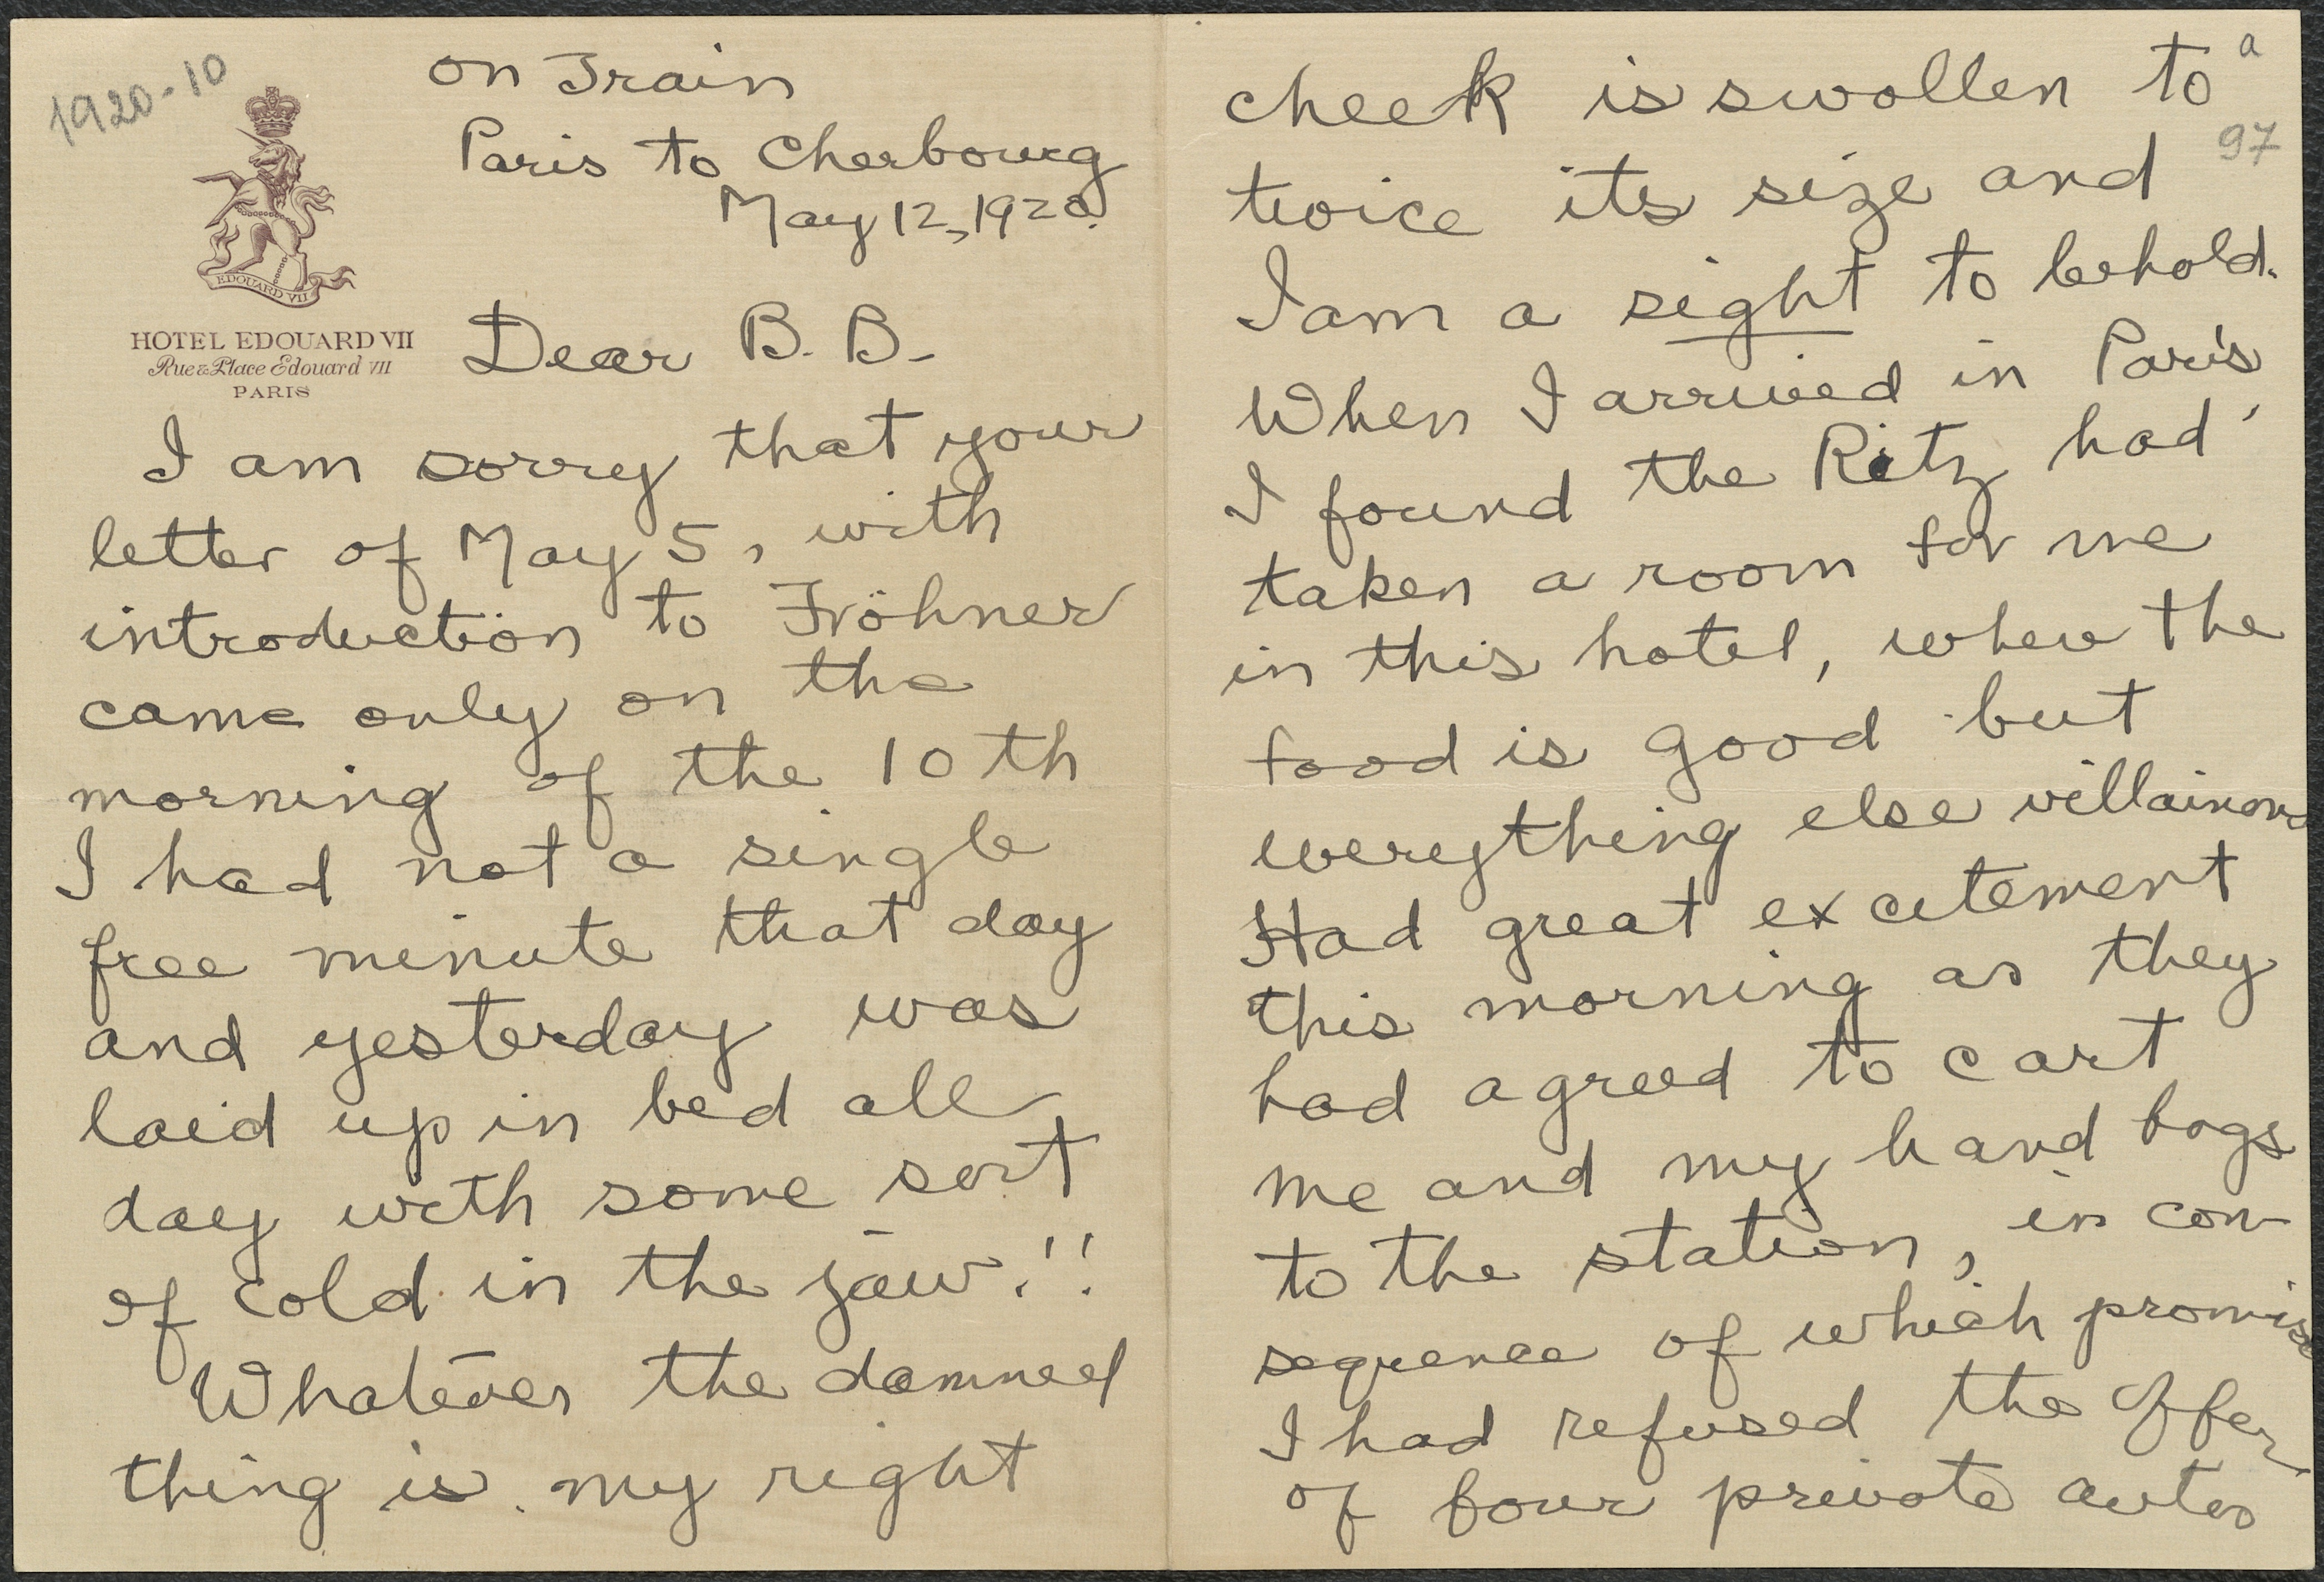 1920-10
on Train
Paris to Cherbourg
May 12, 1920.
EDOUARD VII
HOTEL EDOUARD VII
Rue & Place Edouard VII
PARIS
Dear B. B.
I am sorry that your
letter of May 5, with
introduction to Fröhner
came only on the
morning of the 10th
I had not a single
free minute that day
and yesterday was
laid up in bed all
day with some sort
of cold in the jaw!!
Whatever the damned
thing is my right
a
97
cheek is swollen to
twice its size and
I am a sight to behold.
When I arrived in Paris,
I found the Ritz had
taken a room for me
in this hotel, where the
food is good but
everything else villainous
Had great excitement
this morning as they
had agreed to cart
me and my hand bags
to the station, in con-
sequence of which promise
I had refused the offer
of four private autos